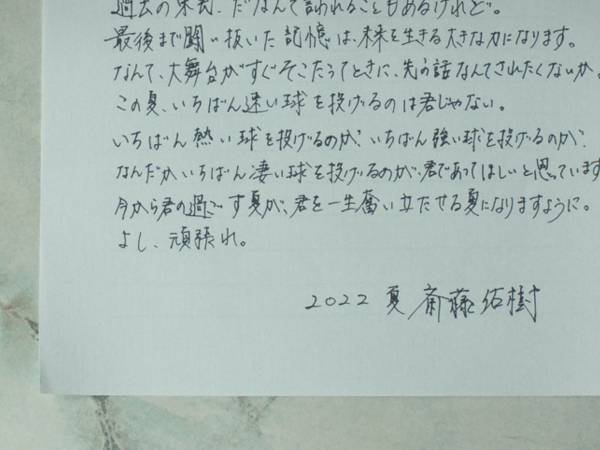 過去の栄光、だなんて言われることもあるけれど。
最後まで闘い抜いた記憶は、未来を生きる大きな力になります。
なんて、大舞台がすぐそこだってときに、先の話なんてされたくないか。
この夏、いちばん速い球を投げるのは君じゃない。
いちばん熱い球を投げるのが、いちばん強い球を投げるのが、
なんだかいちばん凄い球を投げるのが、君であってほしいと思っています
今から君の過ごす夏が、君を一生奮い立たせる夏になりますように。
よし、頑張れ。
2022 夏 斎藤佑樹